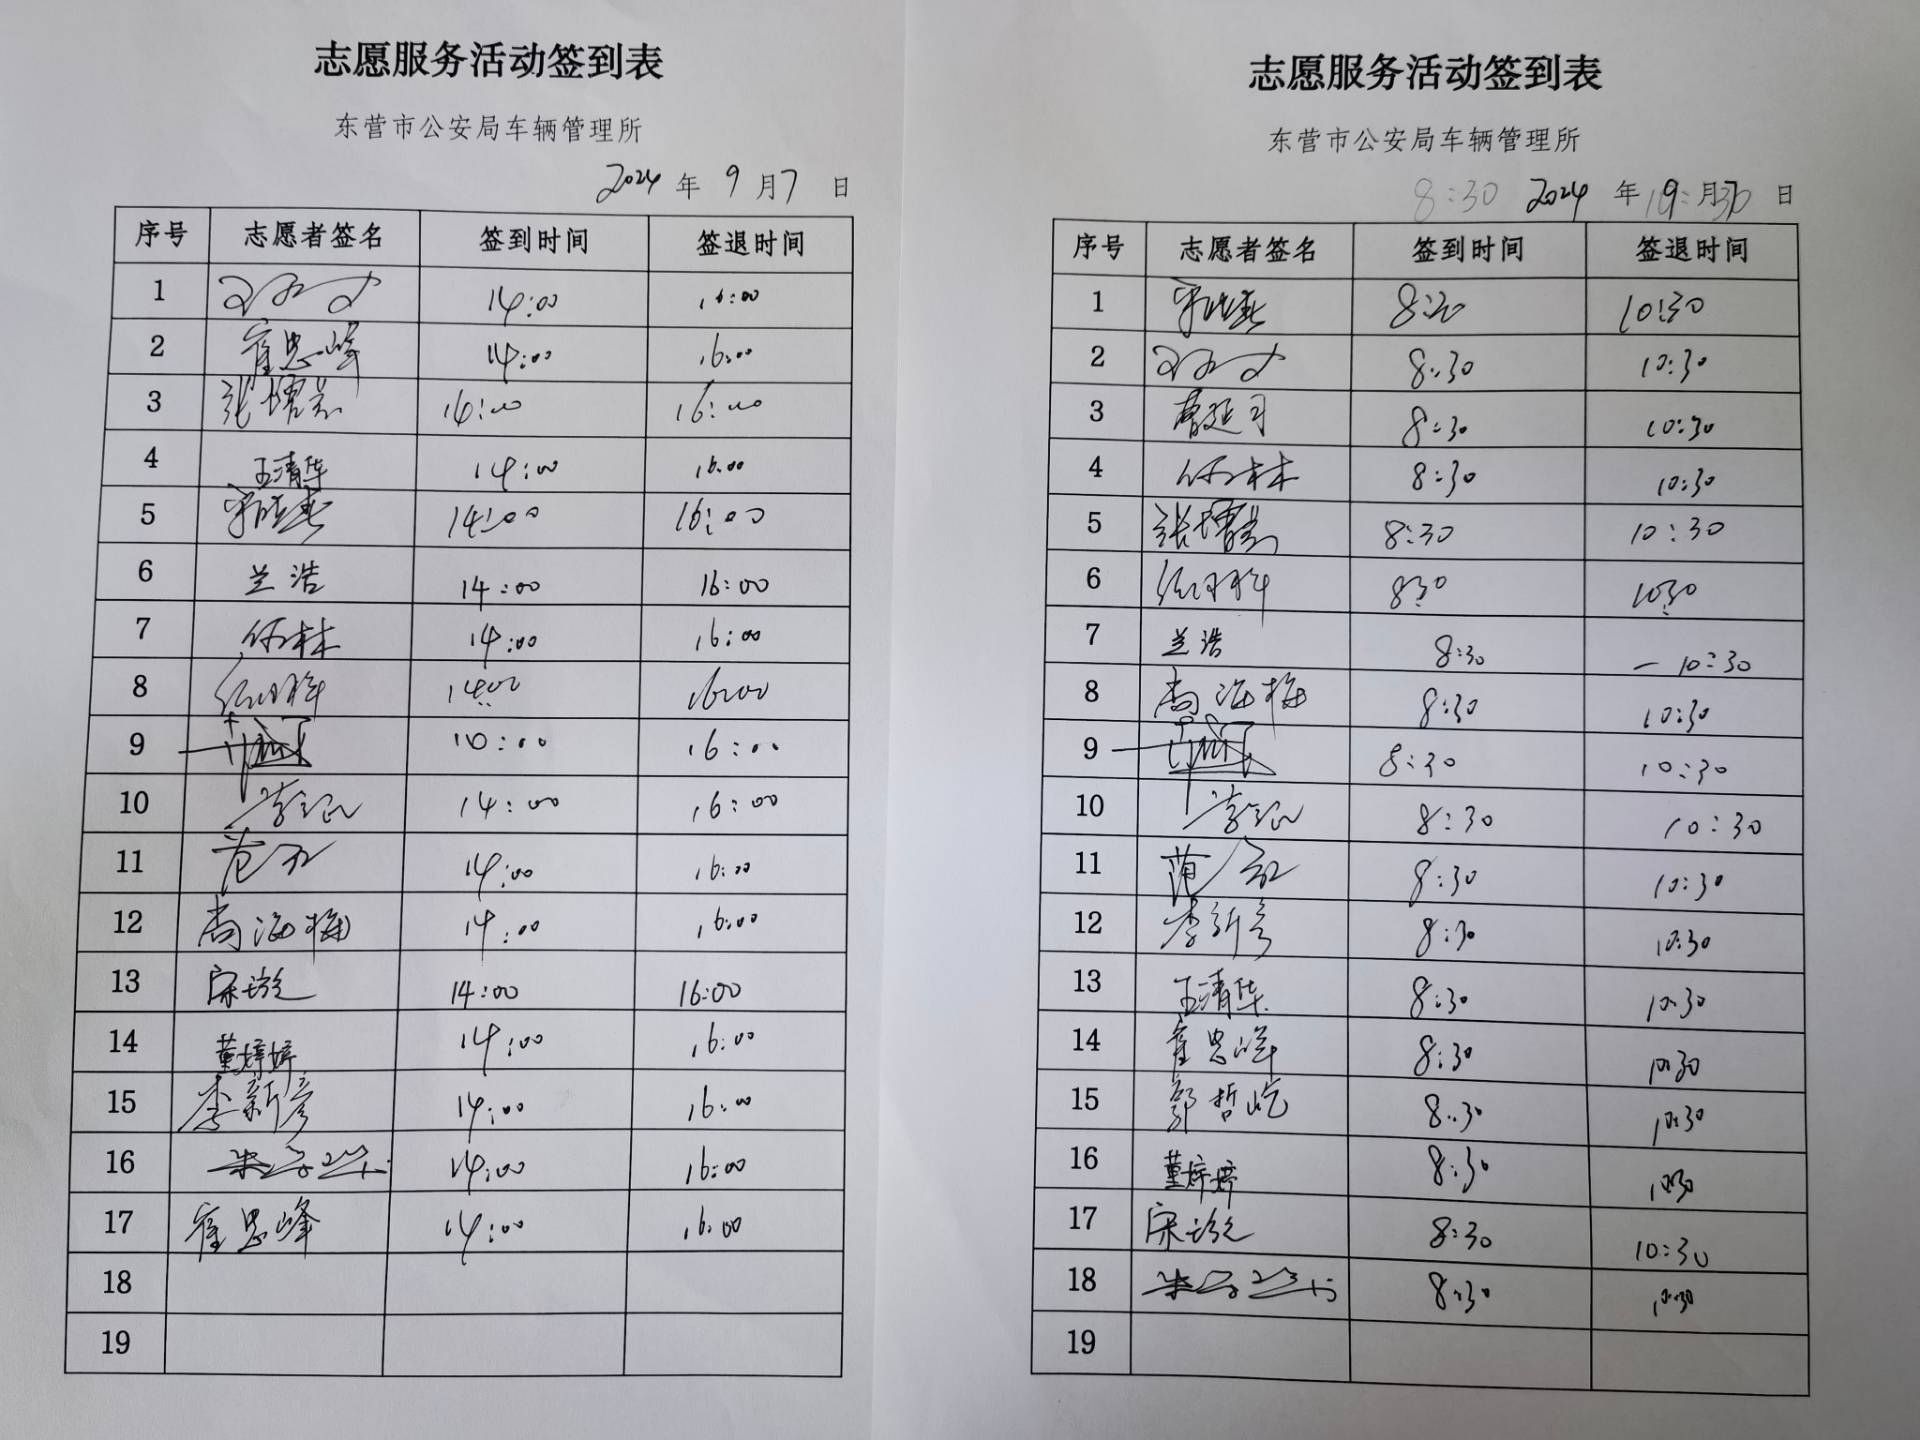 志愿服务活动签到表
东营市公安局车辆管理所
2024 年 9 月 7 日
序号 志愿者签名 签到时间 签退时间
1 14:00 16:00
2 崔思峰 14:00 16:00
3 14:00 16:00
4 王清华 14:00 16:00
5 14:00 16:00
6 兰浩 14:00 16:00
7 14:00 16:00
8 14:00 16:00
9 16:00
10 14:00 16:00
11 14:00 16:00
12 尚海梅 14:00 16:00
13 14:00 16:00
14 董婷婷 14:00 16:00
15 李新彦 14:00 16:00
16 14:00 16:00
17 崔思峰 14:00 16:00
18
19
志愿服务活动签到表
东营市公安局车辆管理所
8:30 2024 年 月 日
序号 志愿者签名 签到时间 签退时间
1 8:30 10:30
2 8:30 10:30
3 8:30 10:30
4 8:30 10:30
5 8:30 10:30
6 8:30 10:30
7 兰浩 8:30 10:30
8 尚海梅 8:30 10:30
9 8:30 10:30
10 8:30 10:30
11 8:30 10:30
12 李新彦 8:30 10:30
13 王清华 8:30 10:30
14 崔思峰 8:30 10:30
15 郭哲屹 8:30 10:30
16 董婷婷 8:30 10:30
17 8:30 10:30
18 8:30 10:30
19